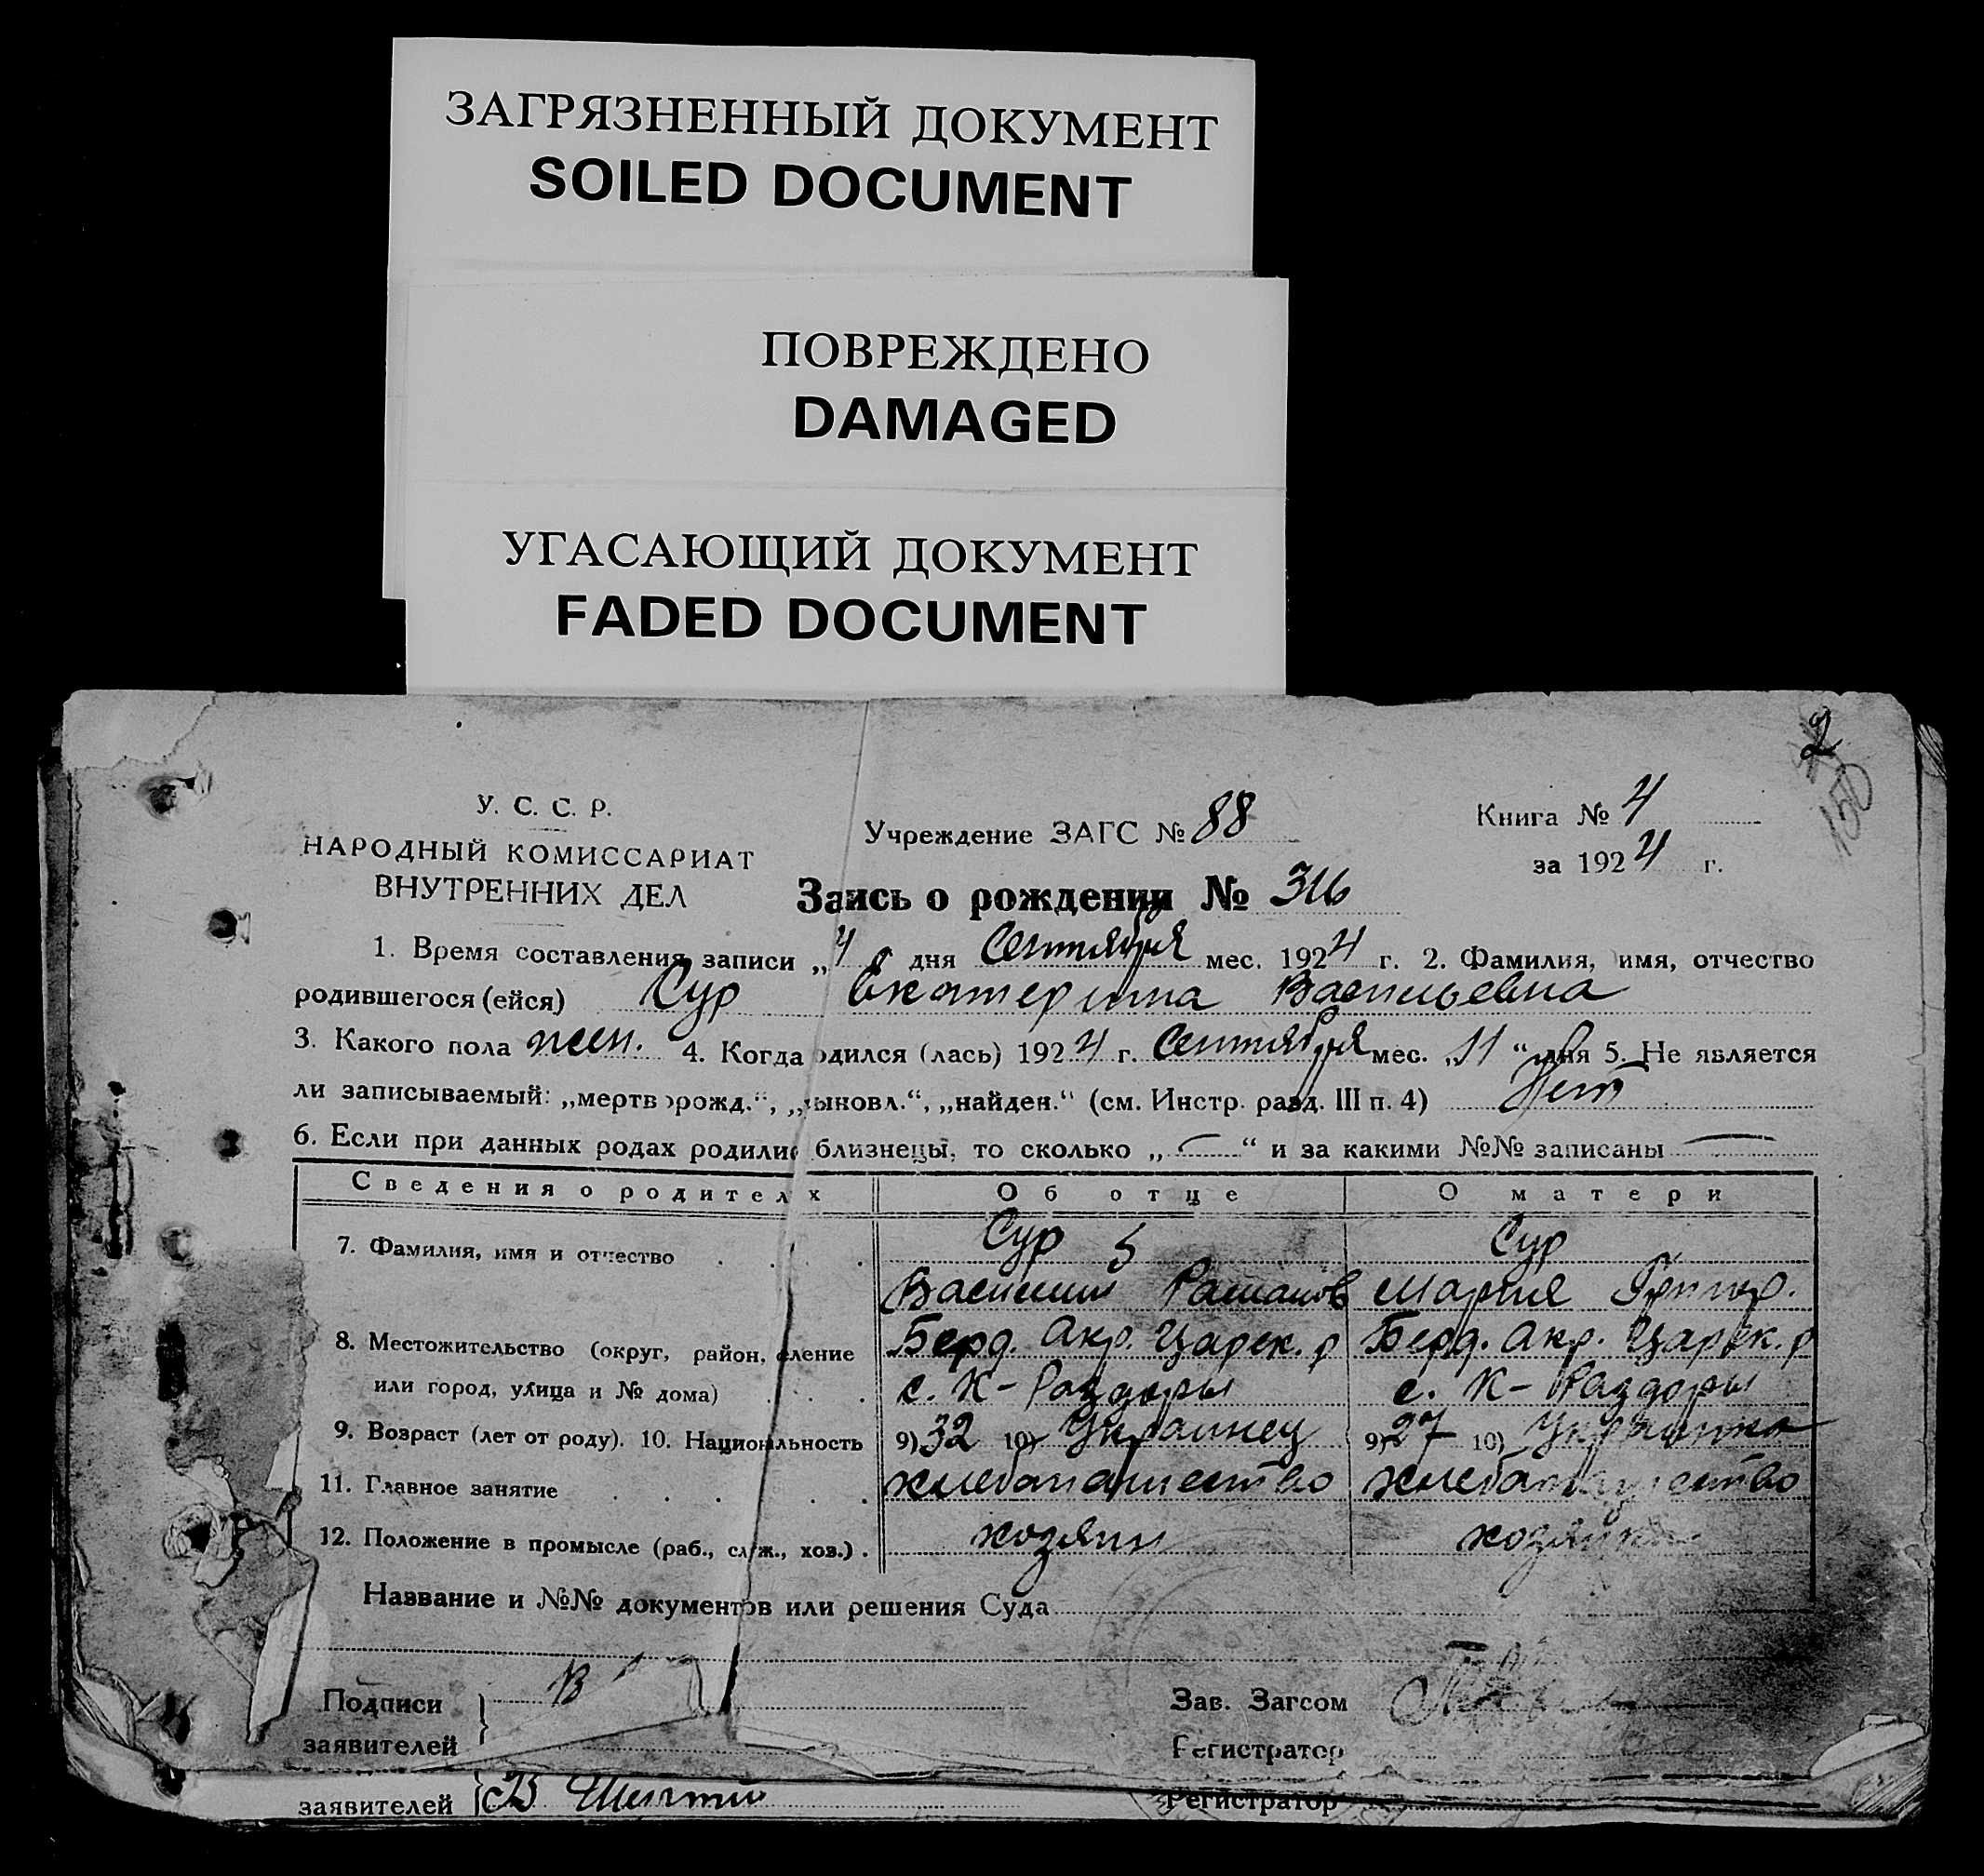 ЗАГРЯЗНЕННЫЙ ДОКУМЕНТ
SOILED DOCUMENT
ПОВРЕЖДЕНО
DAMAGED
УГАСАЮЩИЙ ДОКУМЕНТ
FADED DOCUMENT
2
150
У. С. С. Р.
НАРОДНЫЙ КОМИССАРИАТ
ВНУТРЕННИХ ДЕЛ
Учреждение ЗАГС № 88
Книга № 4
за 1924 г.
Заись о рождении № 316
1. Время составления записи „4 дня Сентября мес. 1924 г. 2. Фамилия, имя, отчество
родившегося (ейся) Сур Екатерина Васильевна
3. Какого пола жен. 4. Когда одился (лась) 1924 г. Сентября мес. „11“ дня 5. Не является
ли записываемый: „мертворожд.“, „ыновл.“, „найден.“ (см. Инстр. разд. III п. 4) Нет
6. Если при данных родах родилис близнецы, то сколько „—“ и за какими №№ записаны —
Сведения о родителях Об отце О матери
7. Фамилия, имя и отчество Сур Сур
Василий Романов Мария Григор.
8. Местожительство (округ, район, еление Берд. Окр. Царек. р Берд. Окр. Царек. р
или город, улица и № дома) с. К-Раздоры с. К-Раздоры
9. Возраст (лет от роду). 10. Национальность 9) 32 10) Украинец 9) 27 10) Украинка
11. Главное занятие хлебопашество хлебопашество
12. Положение в промысле (раб., служ., хоз.) . хозяин хозяйка
Название и №№ документов или решения Суда
Подписи
заявителей } В
Зав. Загсом
Регистратор
заявителей } В
Регистратор